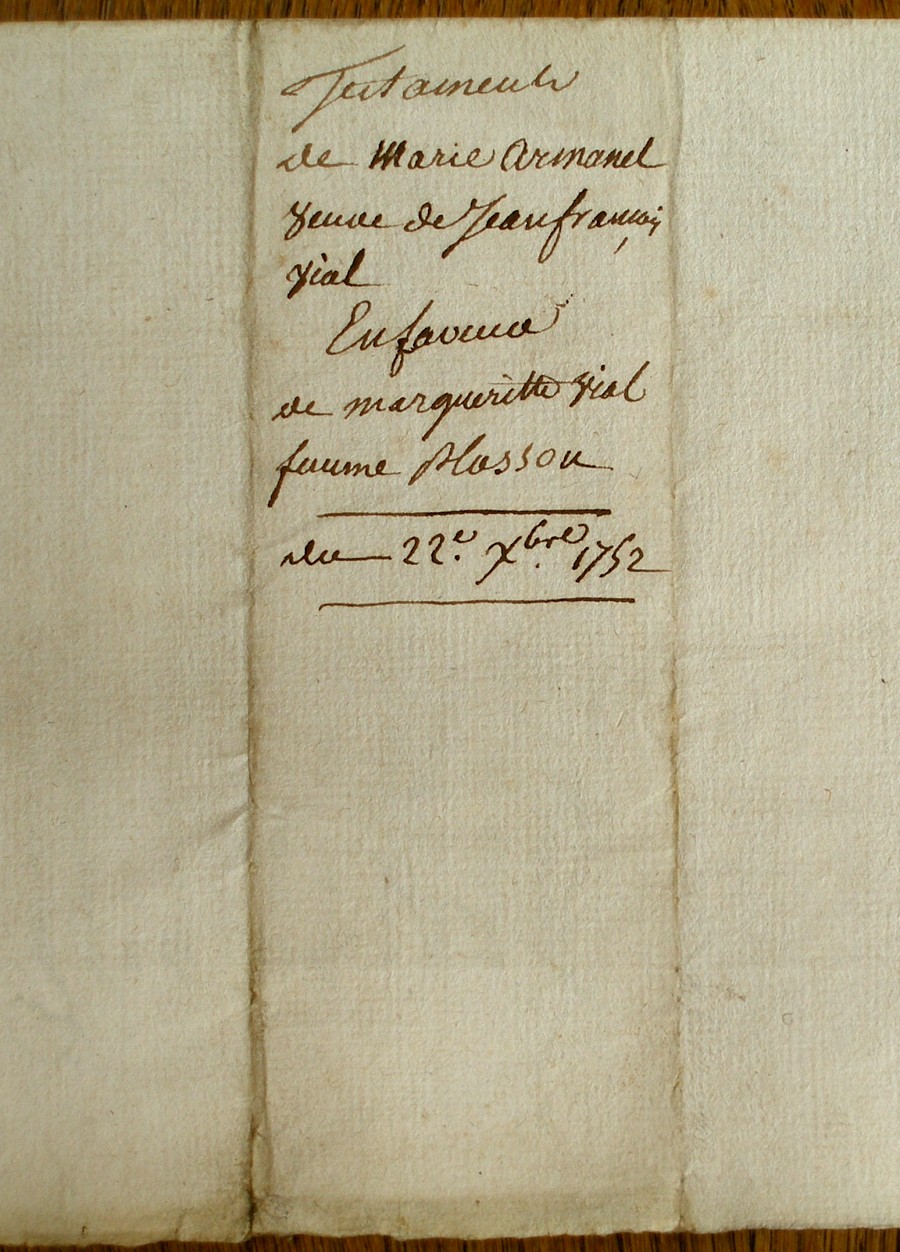 Testament
de Marie Armanet
veuve de Jean françois
vial
En faveur
de margueritte vial
famme Plasson
du 22.e Xbre 1752